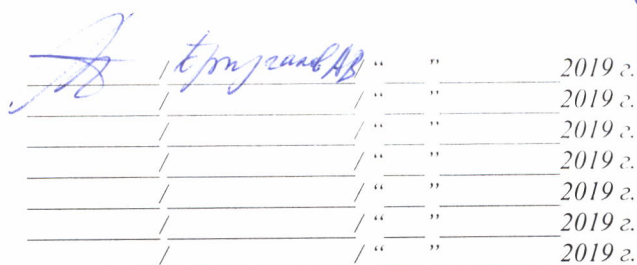 / АВ / “ ” 2019 г.
/ / “ ” 2019 г.
/ / “ ” 2019 г.
/ / “ ” 2019 г.
/ / “ ” 2019 г.
/ / “ ” 2019 г.
/ / “ ” 2019 г.